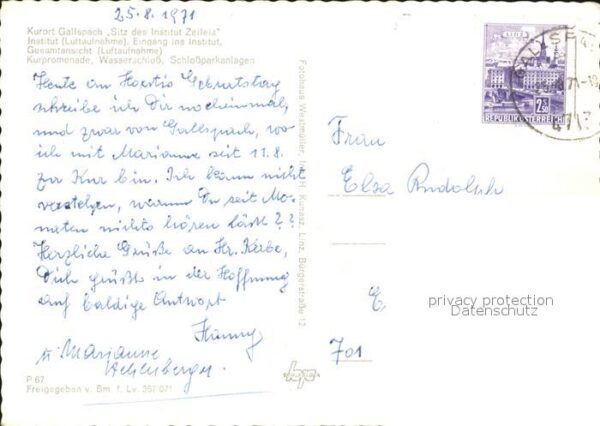 25.8.1971
Kurort Gallspach „Sitz des Institut Zeileis"
Institut (Luftaufnahme), Eingang ins Institut,
Gesamtansicht (Luftaufnahme)
Kurpromenade, Wasserschloß, Schloßparkanlagen
Heute an Geburtstag
schreibe ich Dir noch einmal,
und zwar von Gallspach, wo
ich mit Marianne seit 11.8.
zur Kur bin. Ich kann nicht
verstehen, warum Du seit Mo-
naten nichts hören läßt??
Herzliche Grüße an Hr. Kerbe,
Dich grüßt in der Hoffnung
auf baldige Antwort
Hanny
u Marianne
P 67
Freigegeben v. Bm. f. Lv. 361 071
Fotohaus Westmüller, Inh. H. Kunasz, Linz, Bürgerstraße 12
LINZ
2.50
REPUBLIK ÖSTERREICH
4713
Frau
Elsa Rudolph
E
701
privacy protection
Datenschutz